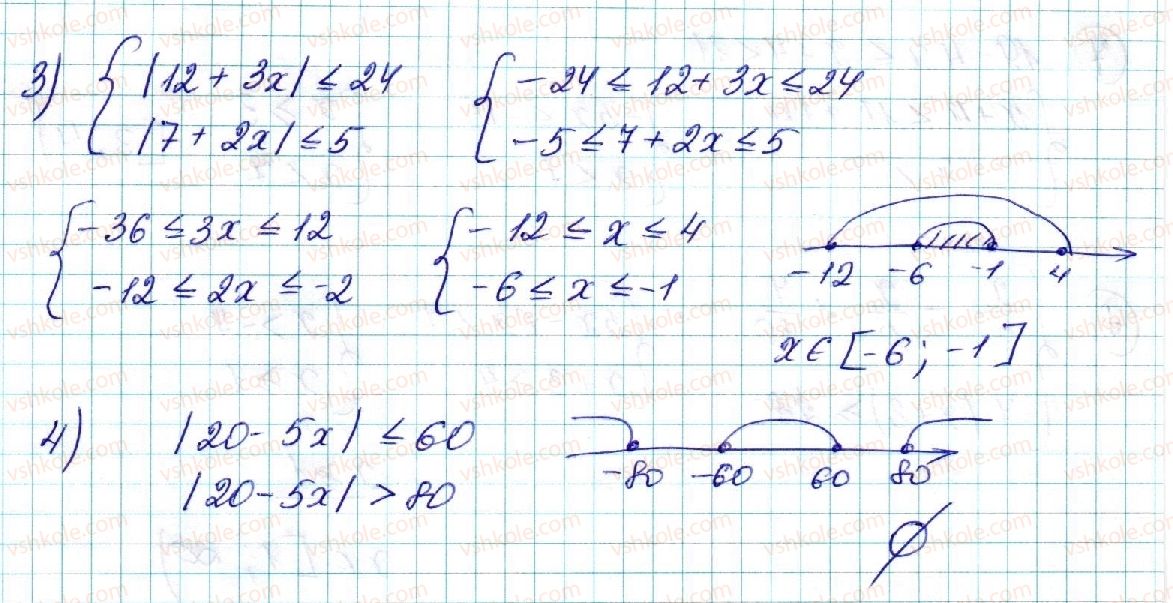 3) { |12 + 3x| ≤ 24 { -24 ≤ 12 + 3x ≤ 24
|7 + 2x| ≤ 5 -5 ≤ 7 + 2x ≤ 5
{ -36 ≤ 3x ≤ 12 { -12 ≤ x ≤ 4
-12 ≤ 2x ≤ -2 -6 ≤ x ≤ -1
-12 -6 -1 4
x ∈ [-6; -1]
4) |20 - 5x| ≤ 60
|20 - 5x| > 80
-80 -60 60 80
∅
vshkole.com